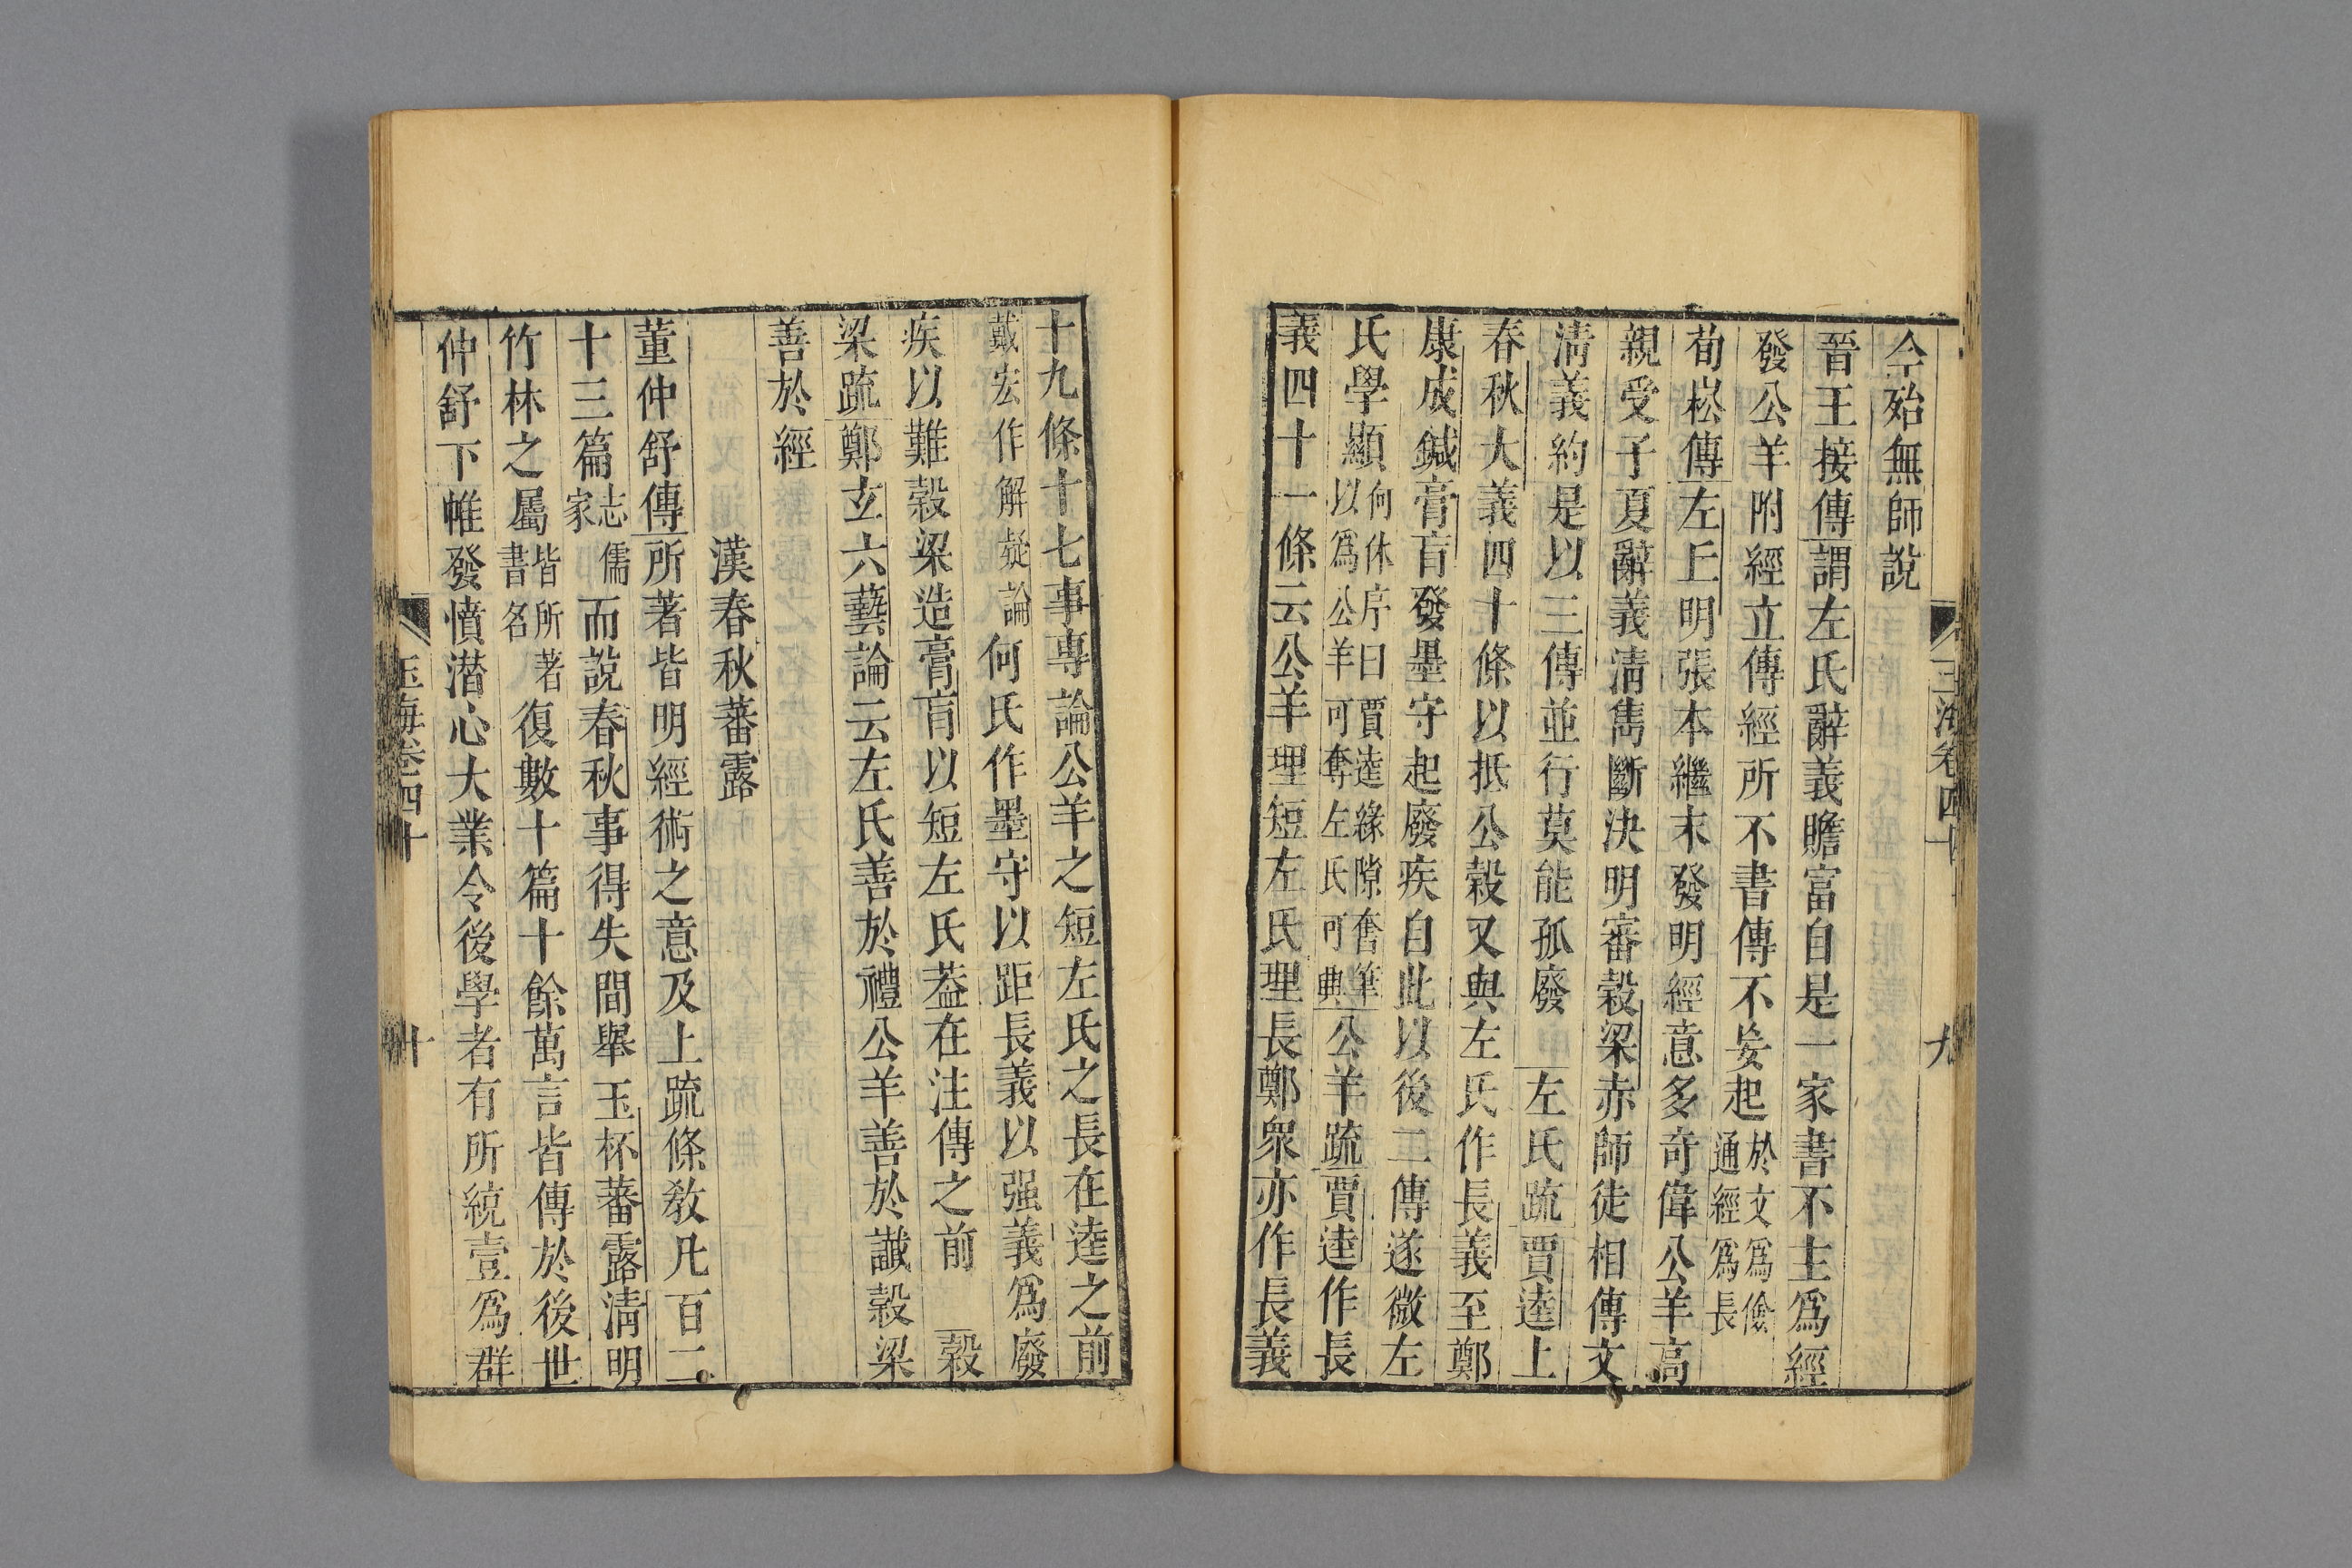 玉海卷四十
九
今殆無師說
晉王接傳謂左氏辭義贍富自是一家書不主爲經
發公羊附經立傳經所不書傳不妄起於文爲儉通經爲長
荀崧傳左丘明張本繼末發明經意多奇偉公羊高
親受子夏辭義淸雋斷決明審穀梁赤師徒相傳文
淸義約是以三傳並行莫能孤廢左氏疏賈逵上
春秋大義四十條以抵公穀又與左氏作長義至鄭
康成鍼膏肓發墨守起廢疾自此以後二傳遂微左
氏學顯何休序曰賈逵緣隙奮筆以爲公羊可奪左氏可興公羊疏賈逵作長
義四十一條云公羊理短左氏理長鄭衆亦作長義
十九條十七事專論公羊之短左氏之長在逵之前
戴宏作解疑論何氏作墨守以距長義以强義爲廢
疾以難穀梁造膏肓以短左氏葢在注傳之前穀
梁疏鄭玄六藝論云左氏善於禮公羊善於讖穀梁
善於經
漢春秋蕃露
董仲舒傳所著皆明經術之意及上疏條敎凡百二
十三篇志儒家而說春秋事得失間舉玉杯蕃露淸明
竹林之屬皆所著書名復數十篇十餘萬言皆傳於後世
仲舒下帷發憤潜心大業令後學者有所統壹爲群
玉海卷四十
十